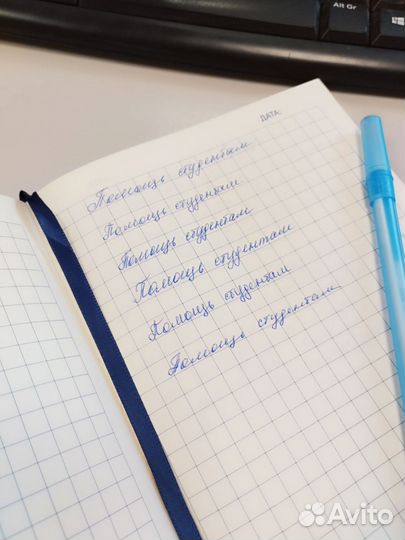 Alt Gr
ДАТА:
Помощь студентам
Помощь студентам
Помощь студентам
Помощь студентам
Помощь студентам
Помощь студентам
Avito